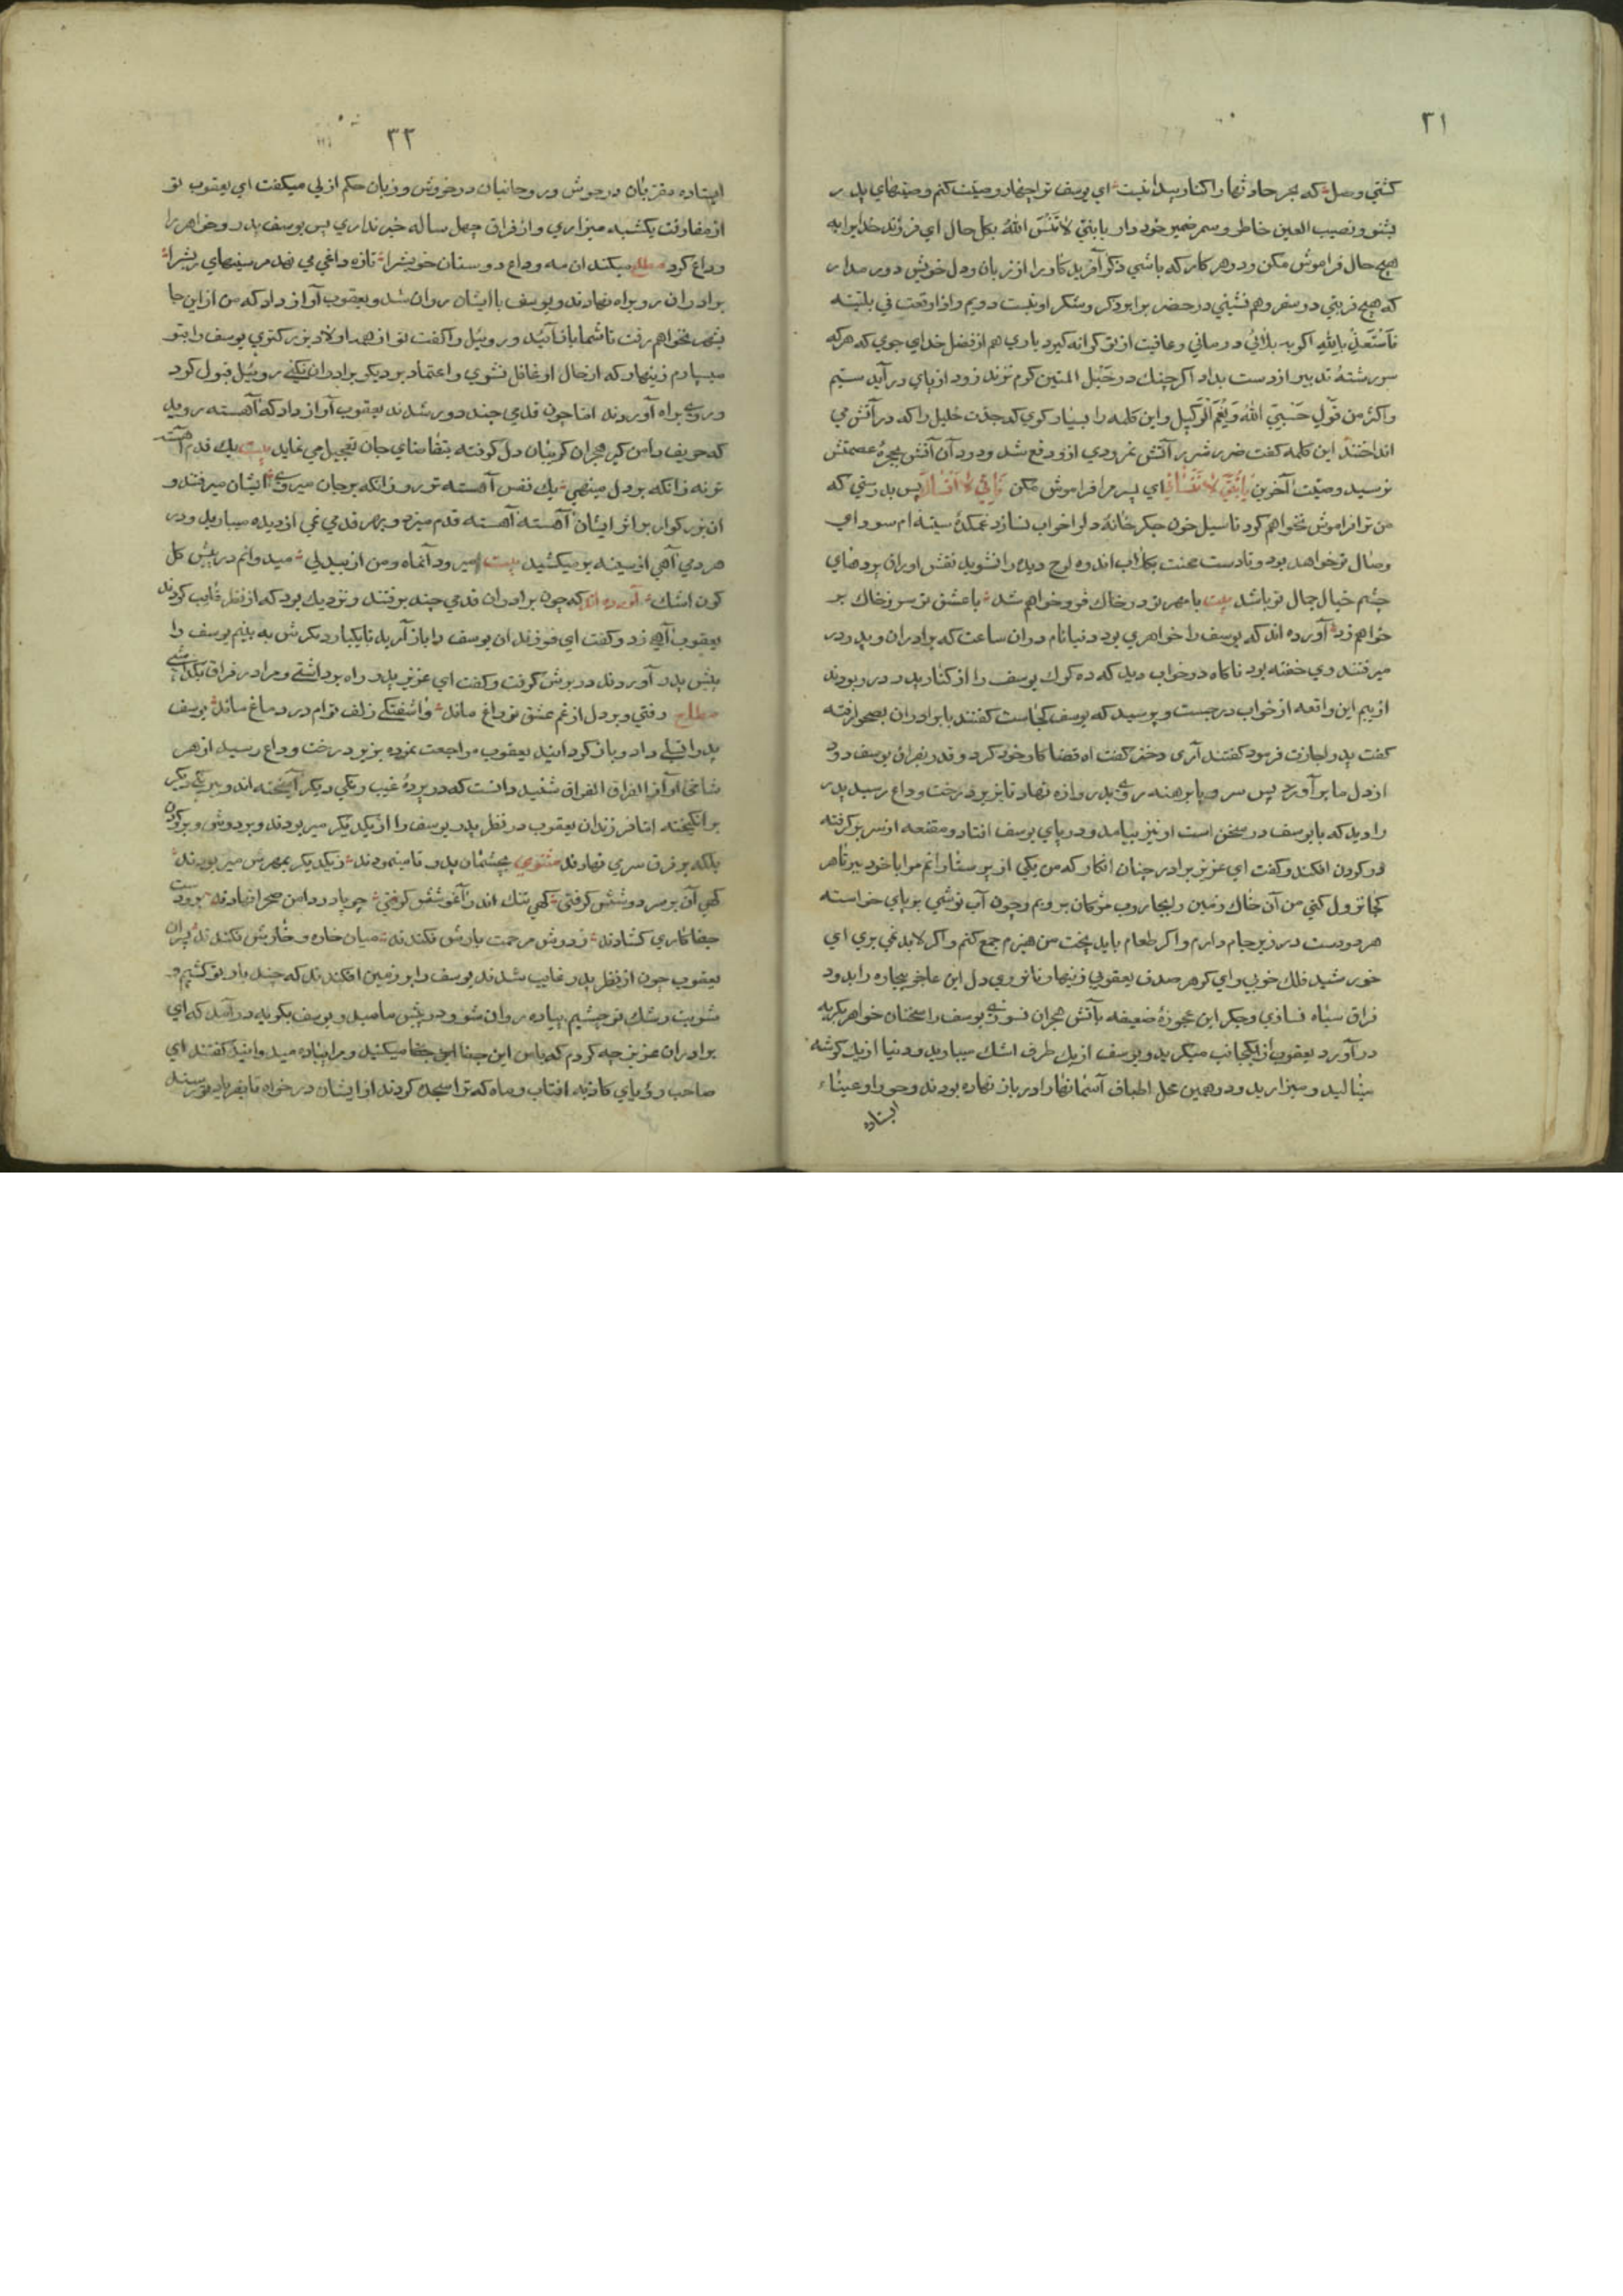 ٣١
كشتی وصل كه بحر حادثها را كنار پیدا نیست ای یوسف ترا چهار وصیّت كنم وصیّتهای پدر
بشنو و نصیب العین خاطر و سمر ضمیر خود دار یا بنیّ لا تنس الله بكل حال ای فرزند خدایرا به
هیچ حال فراموش مكن و در هر كار كه باشی ذكر آفریدكار را از زبان و دل خویش دور مدار
كه هیچ قرینی در سفر و هم نشینی در حضر برابر ذكر و شكر او نیست دویم و اذا وقعت فی بلیّته
فاستعن بالله اكر به بلائی درمانی و عافیت از تو كرانه كیرد یاری هم از فضل خدای جوی كه هركه
سر رشتهٔ تدبیر از دست بداد اكر چنك در حبل المتین كرم نزند زود از پای در آید سیّم
و اكثر من قول حسبیَ الله و نعم الوكیل و این كلمه را بسیار كوی كه جدّت خلیل را كه در آتش می
انداختند این كلمه كفت ضرر شرر آتش نمرودی ازو دفع شد و دود آن آتش بچهرهٔ عصمتش
نرسید وصیّت آخرین یا بنیّ لا تنسانی ای پسر مرا فراموش مكن فانّی لا انساك پس بدرستی كه
من ترا فراموش نخواهم كرد تا سیل خون جكر خانهٔ دلرا خراب نسازد غمكدهٔ سینه ام سودای
وصال تو خواهد بود و تا دست محنت بكلاب اندوه لوح دیده را نشوید نقش اوراق بردهای
چشم خیال جمال تو باشد بیت با مهر تو در خاك فرو خواهم شد با عشق تو سر ز خاك بر
خواهم زد آورده اند كه یوسف را خواهری بود دنیا نام در ان ساعت كه برادران و پدر
میرفتند وی خفته بود ناكاه در خواب دید كه ده كرك یوسف را از كنار پدر در ربودند
از بیم این واقعه از خواب درجست و پرسید كه یوسف كجاست كفتند با برادران بصحرا رفته
كفت پدر اجازت فرمود كفتند آری دختر كفت اه قضا كار خود كرد و قدر بفراق یوسف دود
از دل ما بر آورد پس سر و پا برهنه روی بدروازه نهاد تا بزیر درخت وداع رسید پدر
را دید كه با یوسف در سخن است او نیز بیامد و در پای یوسف افتاد و مقنعه از سر بركرفته
در كردن افكند و كفت ای عزیز برادر چنان انكار كه من یكی از پرستارانم مرا با خود ببر تا هر
كجا نزول كنی من آن خاك زمین را بجاروب مژكان بروبم و چون آب نوشی بر پای خواسته
هر دو دست در زیر جام دارم و اكر طعام باید پخت من هیزم جمع كنم و اكر لابد نمی بری ای
خورشید فلك خوبی و ای كوهر صدف یعقوبی زینهار تا توری دل این عاجز بیچاره را بدود
فراق سیاه نسازی و جكر این عجوزهٔ ضعیفه بآتش هجران نسوزی یوسف را سخنان خواهر بكریه
در آورد یعقوب از یكجانب میكرید و یوسف از یك طرف اشك میبارید و دنیا از یك كوشه
مینالید و میزارید و در همین محل اطباف آسمانها را در باز نهاده بودند و حورا و عیناء
ایستاده
٣٢
ایستاده مقرّبان در جوش و روحانیان در خروش و زبان حكم ازلی میكفت ای یعقوب تو
از مفارقت یكشبه میزاری و از فراق چهل ساله خبر نداری پس یوسف پدر و خواهر را
وداع كرد مطلع میكند ان مه وداع دوستان خویشرا تازه داغی می نهد مر سینهای ریشرا
برادران رو براه نهادند و یوسف با ایشان روان شد و یعقوب آواز داد كه من از این جا
بشهر نخواهم رفت تا شما باز آئید و روبیل را كفت تو از همه اولاد بزركتری یوسف را بتو
میسپارم زینهار كه از حال او غافل نشوی و اعتماد بر دیكر برادران نكنی روبیل قبول كرد
و روی براه آوردند امّا چون قدمی چند دور شدند یعقوب آواز داد كه آهسته روید
كه حریف دامن كیر هجران كریبان دل كرفته بتقاضای جان تعجیل می نماید بیت یك قدم آهسته
تر نه زانكه بر دل مینهی یك نفس آهسته تر رو زانكه بر جان میروی ایشان میرفتند و
ان بزركوار بر اثر ایشان آهسته آهسته قدم میزد و بهر قدمی نمی از دیده میبارید و در
هر دمی آهی از سینه بر میكشید بیت میرود آنماه و من از بیدلی میدوانم در پیش كل
كون اشك آورده اند كه چون برادران قدمی چند برفتند و نزدیك بود كه از نظر غایب كردند
یعقوب آهی زد و كفت ای فرزندان یوسف را باز آرید تا یكبار دیكرش به بینم یوسف را
پیش پدر آوردند در برش كرفت و كفت ای عزیز پدر راه برداشتی و مرا در فراق بكذاشتی
مطلع رفتی و بر دل از غم عشق تو داغ ماند و اشفتكی زلف توام در دماغ ماند یوسف
پدر را تسلی داد و باز كردانید یعقوب مراجعت نموده بزیر درخت وداع رسید از هر
شاخی آواز الفراق الفراق شنید دانست كه در پردهٔ غیب رنكی دیكر آمیخته اند و نیرنكی دیكر
برانكیخته امّا فرزندان یعقوب در نظر پدر یوسف را از یكدیكر میربودند و بر دوش و بر كردن
بلكه بر فرق سر می نهادند مثنوی بچشمان پدر تا مینمودند ز یكدیكر بمهرش میربودند
كهی آن بر سر دوشش كرفتی كهی تنك اندر آغوشش كرفتی چو پا در دامن صحرا نهادند بر و دست
جفا كاری كشادند ز دوش مرحمت بارش فكندند میان خاره و خارش فكندند پسران
یعقوب چون از نظر پدر غایب شدند یوسف را بر زمین افكندند كه چند بار تو كشیم و
شربت رشك تو چشیم پیاده روان شو و در پیش ما میدو یوسف بكریه در آمد كه ای
برادران عزیز چه كردم كه با من این جفا میكنید و مرا پیاده میدوانید كفتند ای
صاحب رؤیای كاذبه افتاب و ماه كه ترا سجده كردند از ایشان در خواه تا بفریاد تو رسند